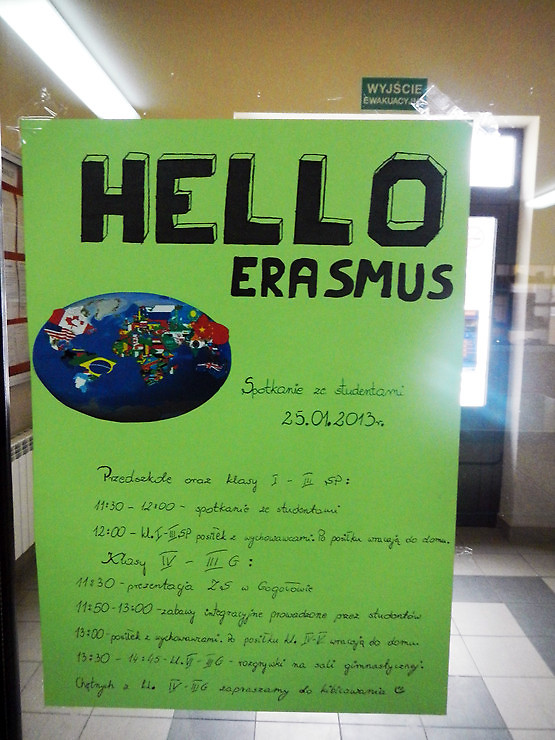 WYJŚCIE
EWAKUACYJNE
HELLO
ERASMUS
Spotkanie ze studentami
25.01.2013r.
Przedszkole oraz klasy I - III SP:
11:30 - 12:00 - spotkanie ze studentami
12:00 - kl. I-III SP posiłek z wychowawcami. Po posiłku wracają do domu.
Klasy IV - III G:
11:30 - prezentacja ZS w Gogołowie
11:50-13:00 - zabawy integracyjne prowadzone przez studentów
13:00 - posiłek z wychowawcami. Po posiłku kl. IV-V wracają do domu.
13:30 - 14:45 - kl. VI - III G - rozgrywki na sali gimnastycznej.
Chętnych z kl. IV - III G zapraszamy do kibicowania